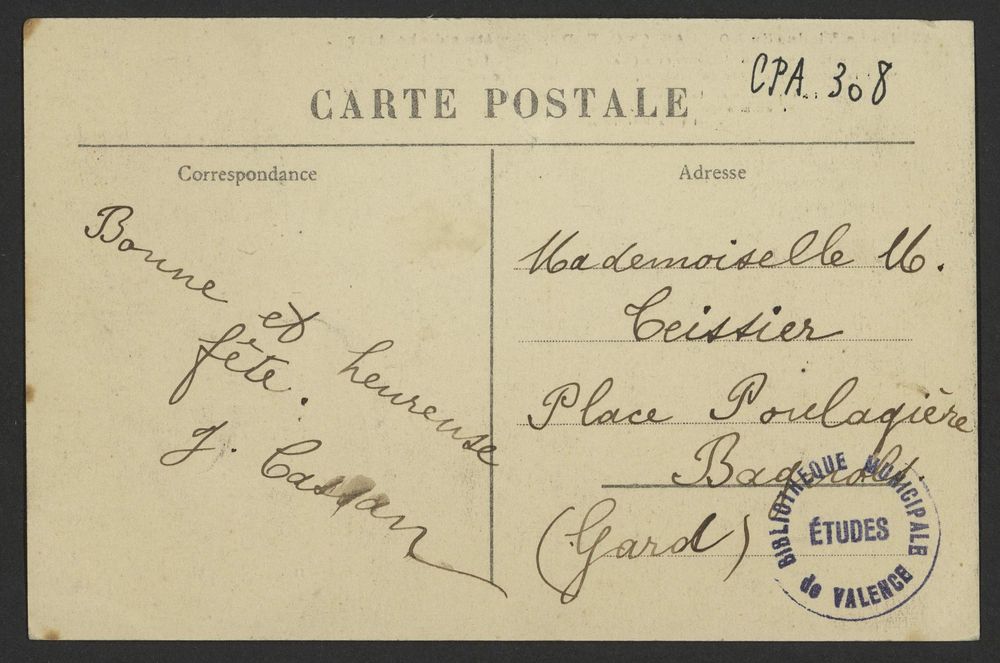 CPA 308
CARTE POSTALE
Correspondance
Bonne et heureuse
fête.
J. Cassan
Adresse
Mademoiselle M.
Teissier
Place Poulagière
Bagnols
(Gard)
BIBLIOTHEQUE MUNICIPALE
ÉTUDES
de VALENCE